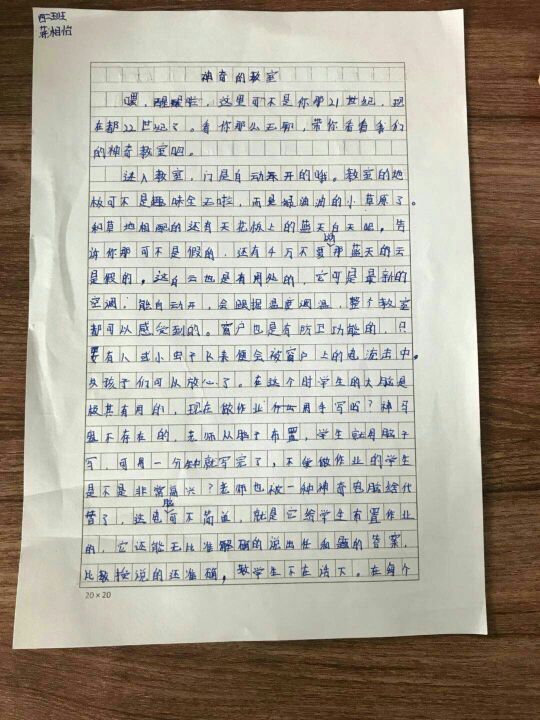 四二班
蒋相怡
神奇的教室
嘿，醒醒啦，这里可不是你那21世纪，现
在都22世纪了。看你那么无聊，带你看看我们
的神奇教室吧。
进入教室，门是自动开的哦。教室的地
板可不是趣味全无啦，而是绿油油的小草原了。
和草地相配的还有天花板上的蓝天白天吧，告
诉你那可不是假的，还有千万不要说那蓝天的云
是假的。这白云也是有用处的，它可是最新的
空调：能自动开，会跟据温度调温，整个教室
都可以感受到的。窗户也是有防卫功能的，只
要有人或小虫子飞来便会被窗户上的电流击中。
女孩子们可以放心了。在这个时学生的大脑是
极其有用的，现在做作业用手写吗？神写
是不存在的，老师从脑子布置，学生就用脑子
写，可是一分钟就写完了，不爱做作业的学生
是不是非常高兴？老师也被一种神奇电脑给代
替了，这电脑可不简单，就是它给学生布置作业
的，它还能无比准确的说出任何题的答案，
比教授说的还准确，教学生不在话下。在每个
20×20